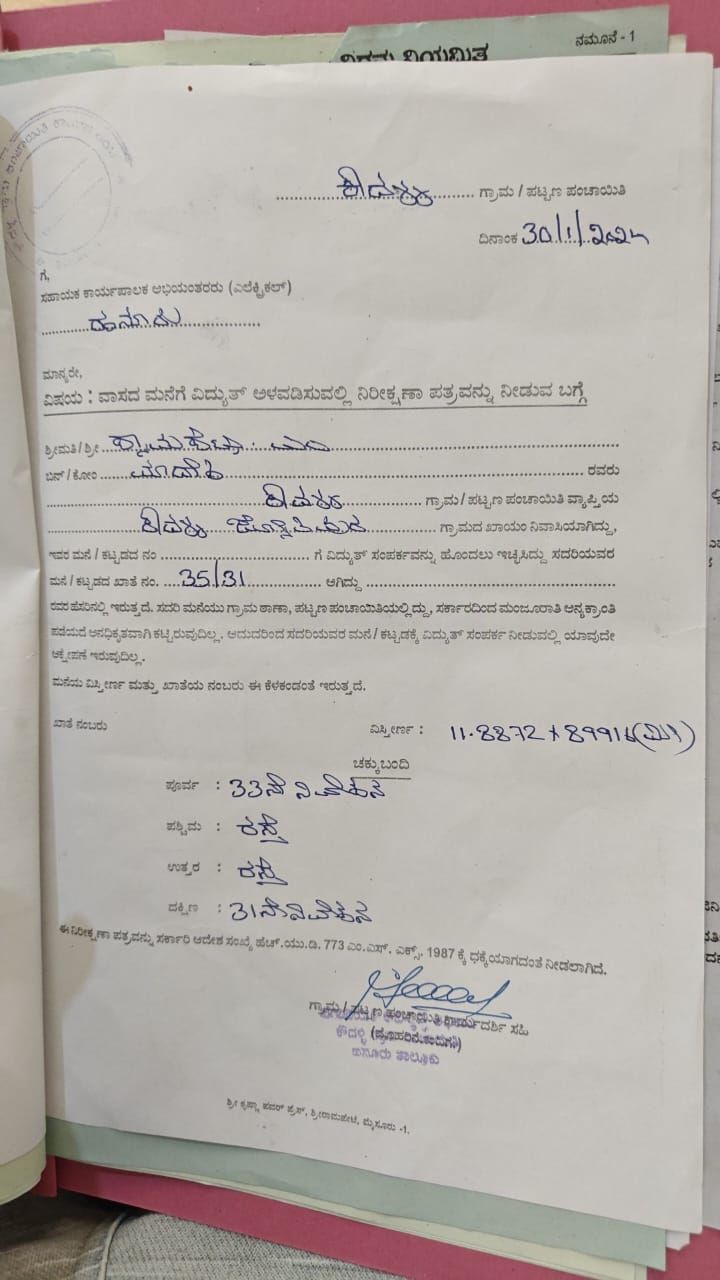 ನಮೂನೆ - 1
ಕೌದಳ್ಳಿ ಗ್ರಾಮ / ಪಟ್ಟಣ ಪಂಚಾಯಿತಿ
ದಿನಾಂಕ 30/1/2025
ಗೆ,
ಸಹಾಯಕ ಕಾರ್ಯಪಾಲಕ ಅಭಿಯಂತರರು (ಎಲೆಕ್ಟ್ರಿಕಲ್)
ಹನೂರು
ಮಾನ್ಯರೇ,
ವಿಷಯ : ವಾಸದ ಮನೆಗೆ ವಿದ್ಯುತ್ ಅಳವಡಿಸುವಲ್ಲಿ ನಿರೀಕ್ಷಣಾ ಪತ್ರವನ್ನು ನೀಡುವ ಬಗ್ಗೆ
ಶ್ರೀಮತಿ/ಶ್ರೀ
ಬಿನ್ / ಕೋಂ ಮಾದೇಶ ರವರು
ಕೌದಳ್ಳಿ ಗ್ರಾಮ/ ಪಟ್ಟಣ ಪಂಚಾಯಿತಿ ವ್ಯಾಪ್ತಿಯ
ಕೌದಳ್ಳಿ ಗ್ರಾಮದ ಖಾಯಂ ನಿವಾಸಿಯಾಗಿದ್ದು,
ಇವರ ಮನೆ / ಕಟ್ಟಡದ ನಂ ಗೆ ವಿದ್ಯುತ್ ಸಂಪರ್ಕವನ್ನು ಹೊಂದಲು ಇಚ್ಛಿಸಿದ್ದು ಸದರಿಯವರ
ಮನೆ / ಕಟ್ಟಡದ ಖಾತೆ ನಂ. 35/31 ಆಗಿದ್ದು
ರವರ ಹೆಸರಿನಲ್ಲಿ ಇರುತ್ತದೆ. ಸದರಿ ಮನೆಯು ಗ್ರಾಮ ಠಾಣಾ, ಪಟ್ಟಣ ಪಂಚಾಯಿತಿಯಲ್ಲಿದ್ದು, ಸರ್ಕಾರದಿಂದ ಮಂಜೂರಾತಿ ಅನ್ಯಕ್ರಾಂತಿ
ಪಡೆಯದೆ ಅನಧಿಕೃತವಾಗಿ ಕಟ್ಟಿರುವುದಿಲ್ಲ. ಆದುದರಿಂದ ಸದರಿಯವರ ಮನೆ / ಕಟ್ಟಡಕ್ಕೆ ವಿದ್ಯುತ್ ಸಂಪರ್ಕ ನೀಡುವಲ್ಲಿ ಯಾವುದೇ
ಆಕ್ಷೇಪಣೆ ಇರುವುದಿಲ್ಲ.
ಮನೆಯ ವಿಸ್ತೀರ್ಣ ಮತ್ತು ಖಾತೆಯ ನಂಬರು ಈ ಕೆಳಕಂಡಂತೆ ಇರುತ್ತದೆ.
ಖಾತೆ ನಂಬರು ವಿಸ್ತೀರ್ಣ :
ಚಕ್ಕುಬಂದಿ
ಪೂರ್ವ : 33ನೇ ನಿವೇಶನ
ಪಶ್ಚಿಮ : ರಸ್ತೆ
ಉತ್ತರ : ರಸ್ತೆ
ದಕ್ಷಿಣ : 31ನೇ ನಿವೇಶನ
ಈ ನಿರೀಕ್ಷಣಾ ಪತ್ರವನ್ನು ಸರ್ಕಾರಿ ಆದೇಶ ಸಂಖ್ಯೆ ಹೆಚ್.ಯು.ಡಿ. 773 ಎಂ.ಎಸ್. ಎಕ್ಸ್. 1987 ಕ್ಕೆ ಧಕ್ಕೆಯಾಗದಂತೆ ನೀಡಲಾಗಿದೆ.
ಗ್ರಾಮ / ಪಟ್ಟಣ ಪಂಚಾಯಿತಿ ಕಾರ್ಯದರ್ಶಿ ಸಹಿ
ಕೌದಳ್ಳಿ (ಮೊಹರಿನೊಂದಿಗೆ)
ಹನೂರು ತಾಲ್ಲೂಕು
ಶ್ರೀ ಕೃಷ್ಣಾ ಪವರ್ ಪ್ರೆಸ್, ಶ್ರೀರಾಮಪೇಟೆ, ಮೈಸೂರು -1.